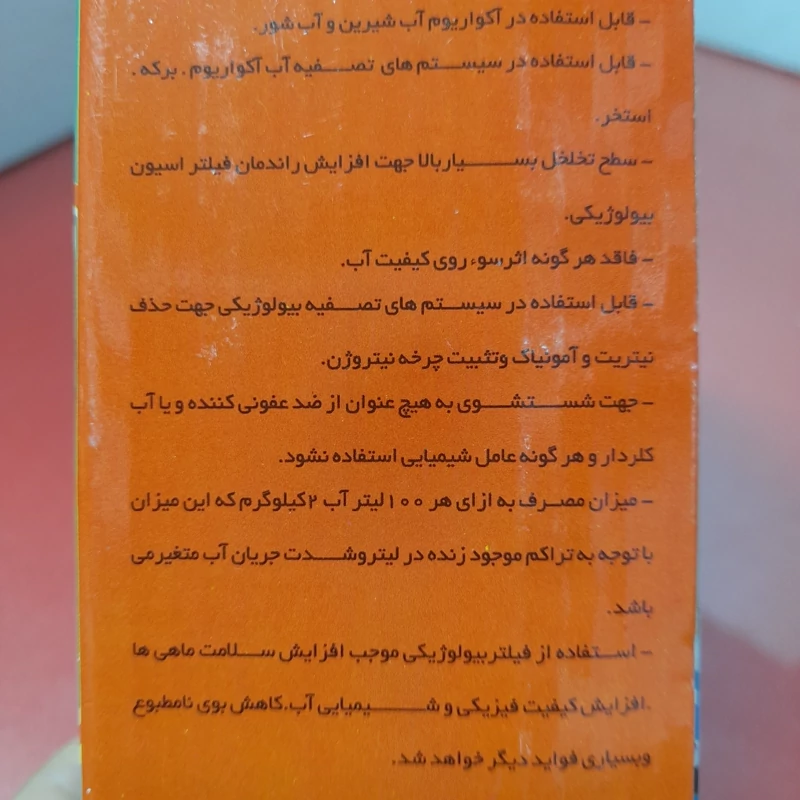 - قابل استفاده در آکواریوم آب شیرین و آب شور.
- قابل استفاده در سیستم های تصفیه آب آکواریوم . برکه .
استخر.
- سطح تخلخل بسیاربالا جهت افزایش راندمان فیلتر اسیون
بیولوژیکی.
- فاقد هر گونه اثرسوء روی کیفیت آب.
- قابل استفاده در سیستم های تصفیه بیولوژیکی جهت حذف
نیتریت و آمونیاک وتثبیت چرخه نیتروژن.
- جهت شستشوی به هیچ عنوان از ضد عفونی کننده و یا آب
کلردار و هر گونه عامل شیمیایی استفاده نشود.
- میزان مصرف به ازای هر ۱۰۰ لیتر آب ۲کیلوگرم که این میزان
با توجه به تراکم موجود زنده در لیتروشدت جریان آب متغیرمی
باشد.
- استفاده از فیلتربیولوژیکی موجب افزایش سلامت ماهی ها
.افزایش کیفیت فیزیکی و شیمیایی آب.کاهش بوی نامطبوع
وبسیاری فواید دیگر خواهد شد.